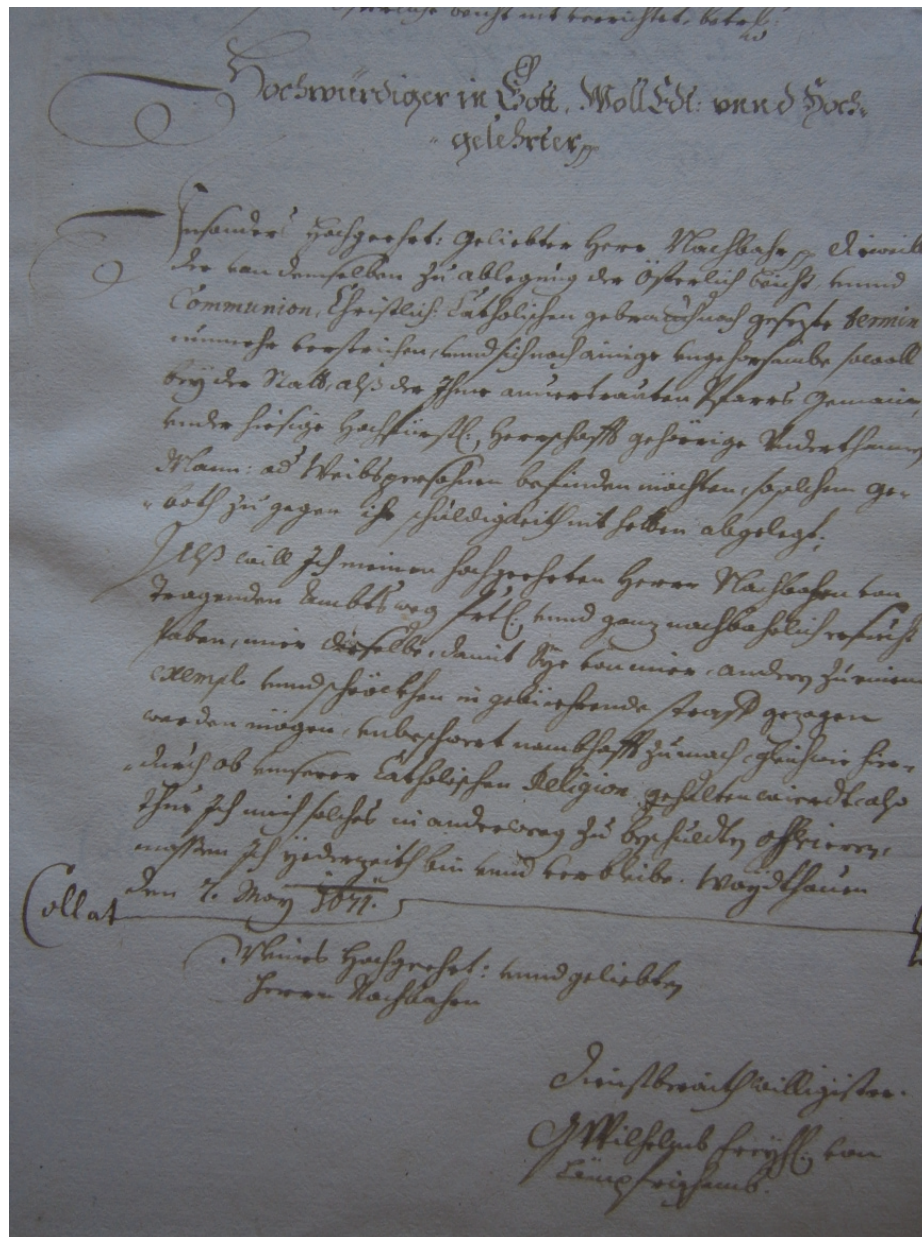 österliche beicht nit verrichtet, betrf:
Hochwürdiger in Gott, Woll Edl: vnnd Hoch-
gelehrter,
Insonders Hochgeehrt: geliebter Herr Nachbahr, dieweil
der von demselben zu ablegung der Österlich beicht, vnnd
Communion, Christlich: Catholischen gebrauch nach gesezte termin
nunmehr verstrichen, vnnd sich noch ainige vngehorsambe sowoll
bey der Statt, alß der Ihme anuertrauten Pfarrs Gemain
vnder hiesige Hochfürstl: Herrschafft gehörrige Vnderthanen
Mann: od Weibspersohnen befinden möchten, solchem ge-
both zu gegen ihr schuldigkeith nit hetten abgelegt;
Alß will Ich meinen hochgeehrten Herrn Nachbahrn von
Tragenden Ambts weg vnnd ganz nachbahrlich ersuecht
haben, mir dieselbe, damit Sye von mir, andern zu einem
exempl vnnd schröckhen in gebüehrende straff gezogen
werden mögen, vnbeschwert nambhafft zu mach, gleichwie hier-
durch ob vnserer Catholischen Religion gehalten wierdt, also
thue Ich mich solches in anderweg zu beschuldten offerieren,
massen Ich yederzeith bin vnnd verbleibe. Waydthouen
den 7. May 1671.
Collat
Meines Hochgeehrt: vnnd geliebten
Herrn Nachbahrn
Dienstberaithwilligister
Wilhelmb Freyh: von